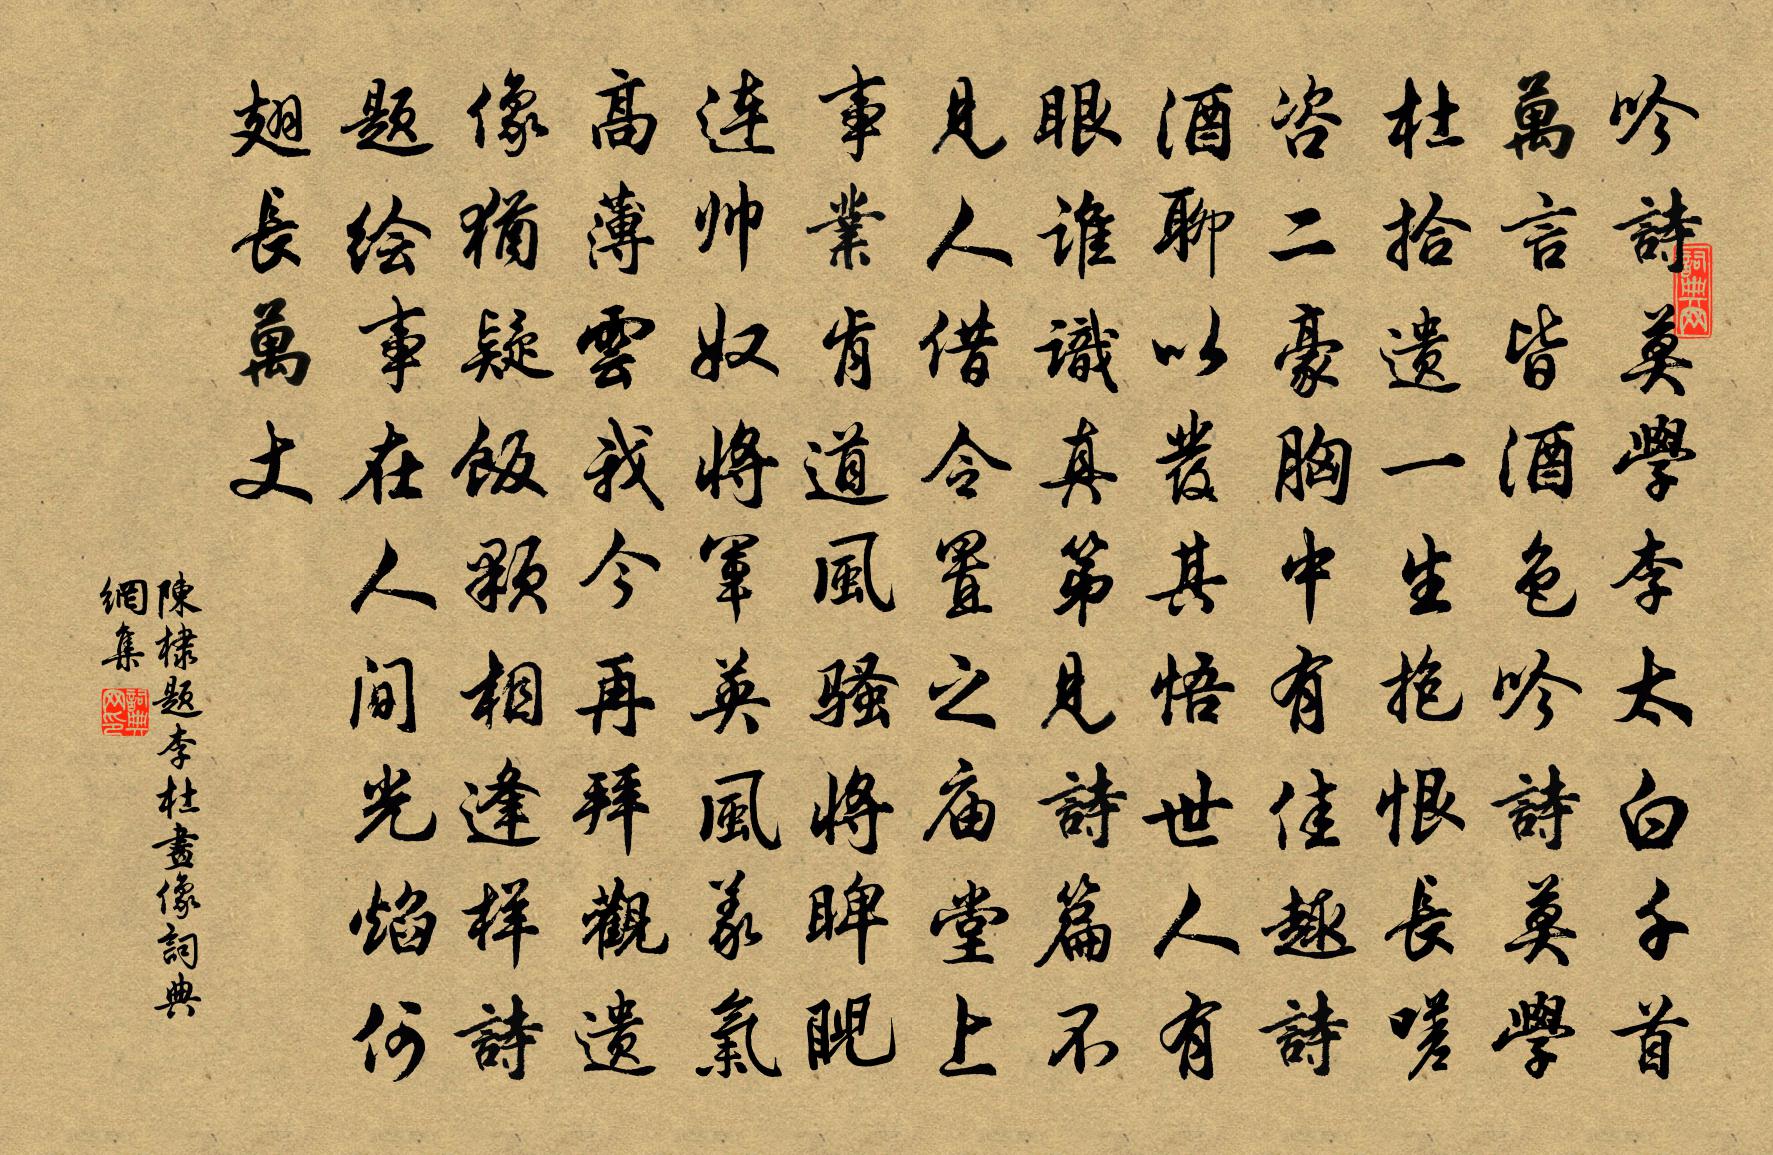 吟詩莫學李太白千首
萬言皆酒色吟詩莫學
杜拾遗一生抱恨長嗟
咨二豪胸中有佳趣詩
酒聊以發其悟世人有
眼谁識真第見詩篇不
見人借令置之庙堂上
事業肯道風骚将睥睨
连帅奴将軍英風義氣
高薄雲我今再拜觀遗
像犹疑飯颗相逢样詩
题绘事在人间光焰何
翅長萬丈
陳棣题李杜畫像詞典
網集
詞典网